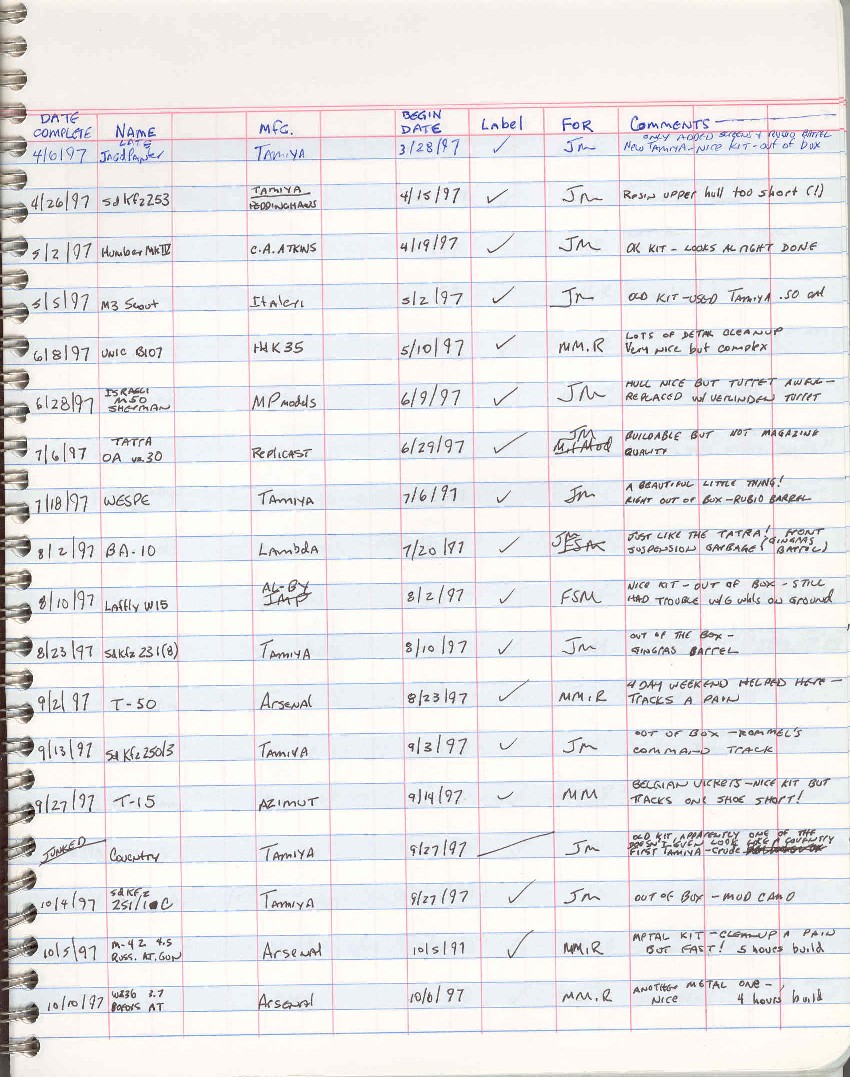 DATE COMPLETE NAME MFG. BEGIN DATE Label FOR COMMENTS
4/6/97 LATE JagdPanter TAMIYA 3/28/97 ✓ Jm ONLY ADDED SCREENS & RUBIO BARREL
New TAMIYA - NICE KIT - OUT OF BOX
4/26/97 SdKfz253 TAMIYA PEDDINGHAUS 4/15/97 ✓ Jm RESIN UPPER HULL TOO SHORT (!)
5/2/97 Humber MKIV C.A. ATKINS 4/19/97 ✓ Jm OK KIT - LOOKS ALRIGHT DONE
5/5/97 M3 Scout Italeri 5/2/97 ✓ Jm OLD KIT - USED TAMIYA .50 cal
6/8/97 UNIC P107 HdK35 5/10/97 ✓ MM.R LOTS OF DETAIL CLEANUP
Very NICE but complex
6/28/97 ISRAELI M50 SHERMAN MP models 6/9/97 ✓ Jm HULL NICE BUT TURRET AWFUL -
REPLACED W/ VERLINDEN TURRET
7/6/97 TATRA OA vz.30 REPLICAST 6/29/97 ✓ Jm Mil Mod BUILDABLE BUT NOT MAGAZINE
QUALITY
7/18/97 WESPE TAMIYA 7/6/97 ✓ Jm A BEAUTIFUL LITTLE THING!
RIGHT OUT OF BOX - RUBIO BARREL
8/2/97 BA-10 LAMbdA 7/20/97 ✓ Jm JUST LIKE THE TATRA! FRONT
SUSPENSION GARBAGE! (GINGRAS BARREL)
8/10/97 Laffly W15 AL-BY 8/2/97 ✓ FSM NICE KIT - OUT OF BOX - STILL
HAD TROUBLE W/6 whls ON GROUND
8/23/97 SdKfz 231(8) TAMIYA 8/10/97 ✓ Jm OUT OF THE BOX -
GINGRAS BARREL
9/2/97 T-50 Arsenal 8/23/97 ✓ MM.R 4 DAY WEEKEND HELPED HERE -
TRACKS A PAIN
9/13/97 SdKfz250/3 TAMIYA 9/3/97 ✓ Jm OUT OF BOX - ROMMEL'S
COMMAND TRACK
9/27/97 T-15 AZIMUT 9/14/97 ✓ MM BELGIAN VICKERS - NICE KIT BUT
TRACKS ONE SHOE SHORT!
JUNKED Coventry TAMIYA 9/27/97 Jm OLD KIT, APPARENTLY ONE OF THE
DOESN'T EVEN LOOK LIKE A COVENTRY
FIRST TAMIYA - crude
10/4/97 SdKfz 251/1 C TAMIYA 9/27/97 ✓ Jm OUT OF BOX - MUD CAMO
10/5/97 M-42 4.5 RUSS. AT. GUN Arsenal 10/5/97 ✓ MM.R METAL KIT - CLEANUP A PAIN
BUT FAST! 5 hours build
10/10/97 WZ36 3.7 BOFORS AT Arsenal 10/6/97 MM.R ANOTHER METAL ONE -
NICE 4 hours build